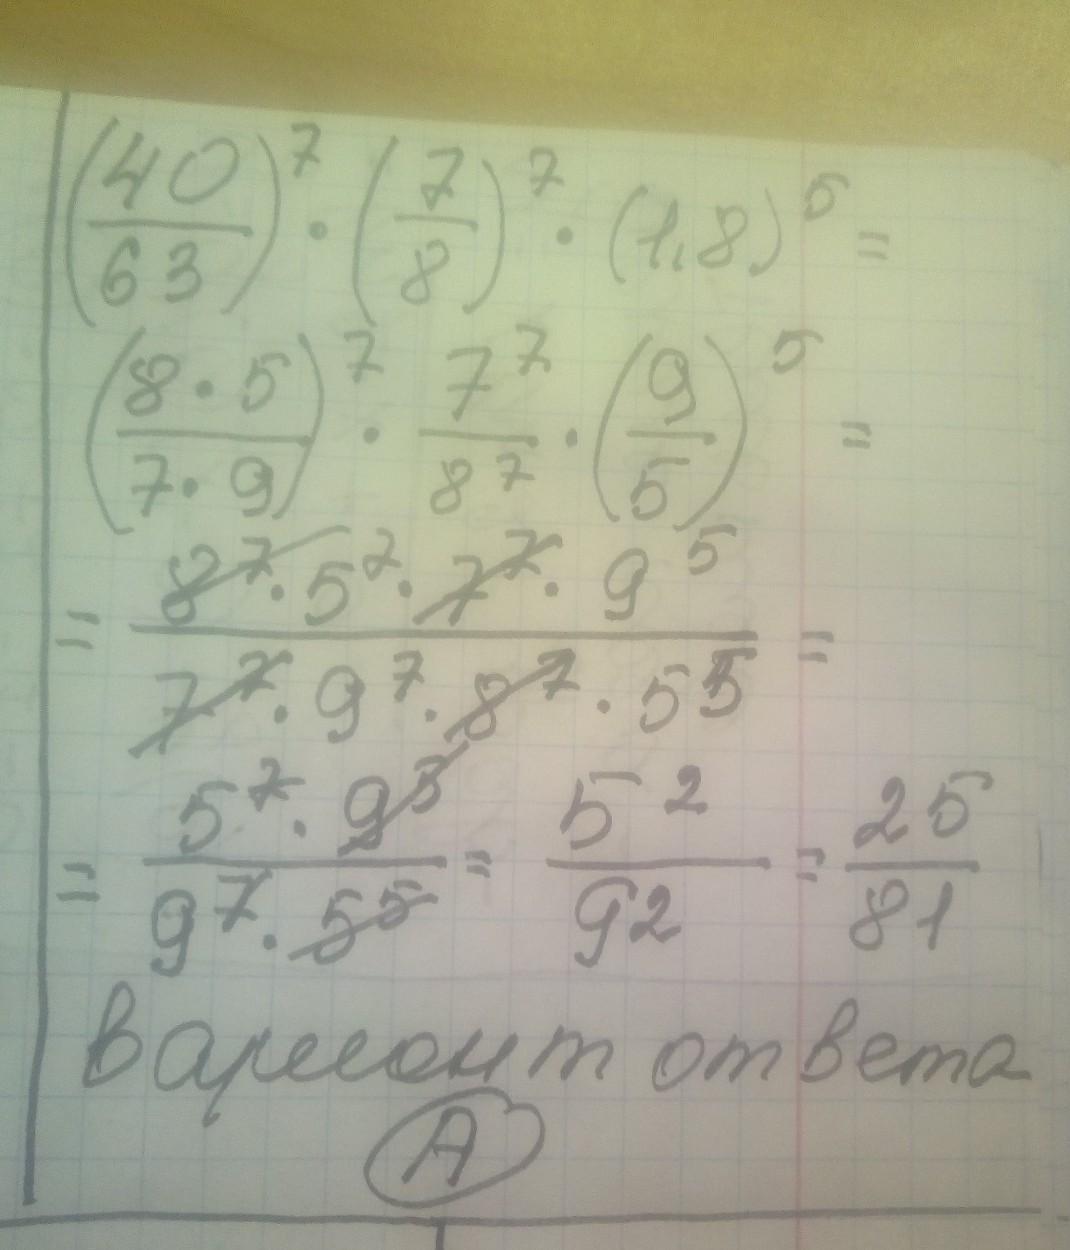 (40/63)^7 · (7/8)^7 · (1,8)^5 =
(8·5/7·9)^7 · 7^7/8^7 · (9/5)^5 =
= 8^7 · 5^7 · 7^7 · 9^5 / 7^7 · 9^7 · 8^7 · 5^5 =
= 5^7 · 9^5 / 9^7 · 5^5 = 5^2/9^2 = 25/81
Вариант ответа
А